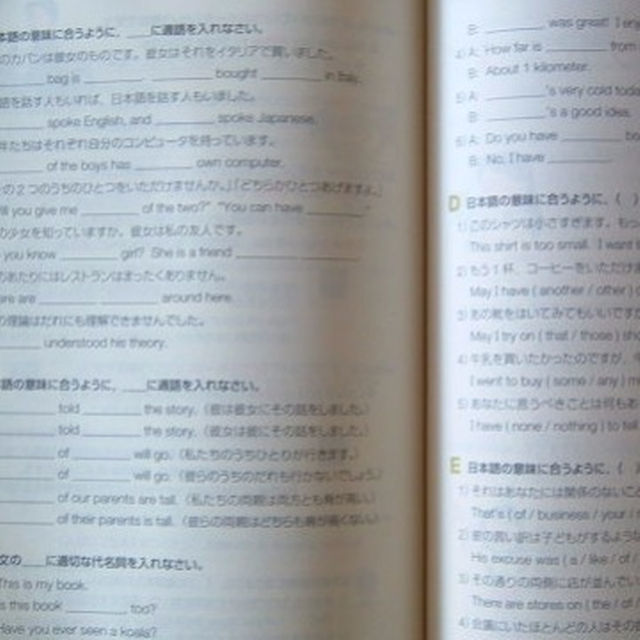 本語の意味に合うように、___に適語を入れなさい。
のカバンは彼女のものです。彼女はそれをイタリアで買いました。
______ bag is ______. ______ bought ______ in Italy.
語を話す人もいれば、日本語を話す人もいました。
______ spoke English, and ______ spoke Japanese.
たちはそれぞれ自分のコンピュータを持っています。
______ of the boys has ______ own computer.
の2つのうちのひとつをいただけませんか。」「どちらかひとつあげますよ。」
ll you give me ______ of the two?" "You can have ______."
の少女を知っていますか。彼女は私の友人です。
you know ______ girl? She is a friend ______ ______.
のあたりにはレストランはまったくありません。
ere are ______ ______ around here.
の理論はだれにも理解できませんでした。
______ understood his theory.
語の意味に合うように、___に適語を入れなさい。
______ told ______ the story.（彼は彼女にその話をしました。）
______ told ______ the story.（彼女は彼にその話をしました。）
______ of ______ will go.（私たちのうちひとりが行きます。）
______ of ______ will go.（彼らのうちのだれも行かないでしょう。）
______ of our parents are tall.（私たちの両親は両方とも背が高い。）
______ of their parents is tall.（彼らの両親はどちらも背が高くない。）
文の___に適切な代名詞を入れなさい。
This is my book.
s this book ______ too?
Have you ever seen a koala?
B: ______ was great! I enj
4) A: How far is ______ from
B: About 1 kilometer.
5) A: ______'s very cold toda
B: ______'s a good idea.
6) A: Do you have ______
B: No, I have ______
D 日本語の意味に合うように、( )
1) このシャツは小さすぎます。もっ
This shirt is too small. I want
2) もう1杯、コーヒーをいただけ
May I have ( another / other )
3) あの靴をはいてみてもいいですか
May I try on ( that / those ) sho
4) 牛乳を買いたかったのですが、
I went to buy ( some / any ) m
5) あなたに言うべきことは何もあ
I have ( none / nothing ) to tell
E 日本語の意味に合うように、(
1) それはあなたには関係のないこ
That's ( of / business / your /
2) 彼の言い訳は子どもがするような
His excuse was ( a / like / of /
3) その通りの両側に店が並んでい
There are stores on ( the / of /
4) 会議にいたほとんどの人はその